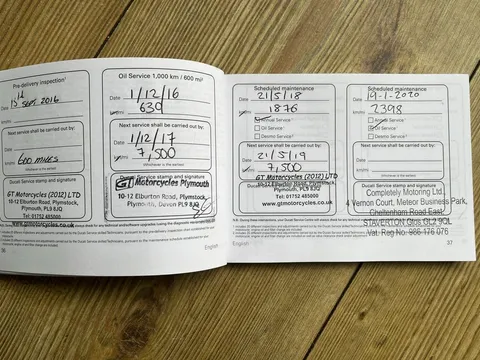 Pre-delivery inspection¹
Date
Sept 2016
km/mi
Next service shall be carried out by:
Date
km/mi 600 MILES
(Whichever is the earlier)
Ducati Service stamp and signature
GT Motorcycles (2012) LTD
10-12 Elburton Road, Plymstock,
Plymouth, PL9 8JQ
Tel: 01752 485000
36
Oil Service 1,000 km / 600 mi²
Date 1/12/16
km/mi 630
Next service shall be carried out by:
Date 1/12/17
km/mi 7,500
(Whichever is the earlier)
Ducati Service stamp and signature
GT Motorcycles Plymouth
10-12 Elburton Road, Plymstock,
Plymouth, Devon PL9 8JQ
English
Scheduled maintenance
Date 21/5/18
km/mi 1876
Annual Service
Oil Service
Desmo Service
Next service shall be carried out by:
Date 21/5/19
km/mi 7,500
(Whichever is the earlier)
Ducati Service stamp and signature
GT Motorcycles (2012) LTD
10-12 Elburton Road, Plymstock,
Plymouth, PL9 8JQ
Tel: 01752 485000
www.gtmotorcycles.co.uk
English
Scheduled maintenance
Date 19-1-2020
km/mi 2398
Annual Service
Oil Service
Desmo Service
Next service shall be carried out by:
Date
km/mi
(Whichever is the earlier)
Ducati Service stamp and signature
Completely Motoring Ltd.
4 Vernon Court, Meteor Business Park,
Cheltenham Road East,
STAVERTON Glos GL2 9QL
Vat. Reg No: 986 176 076
37